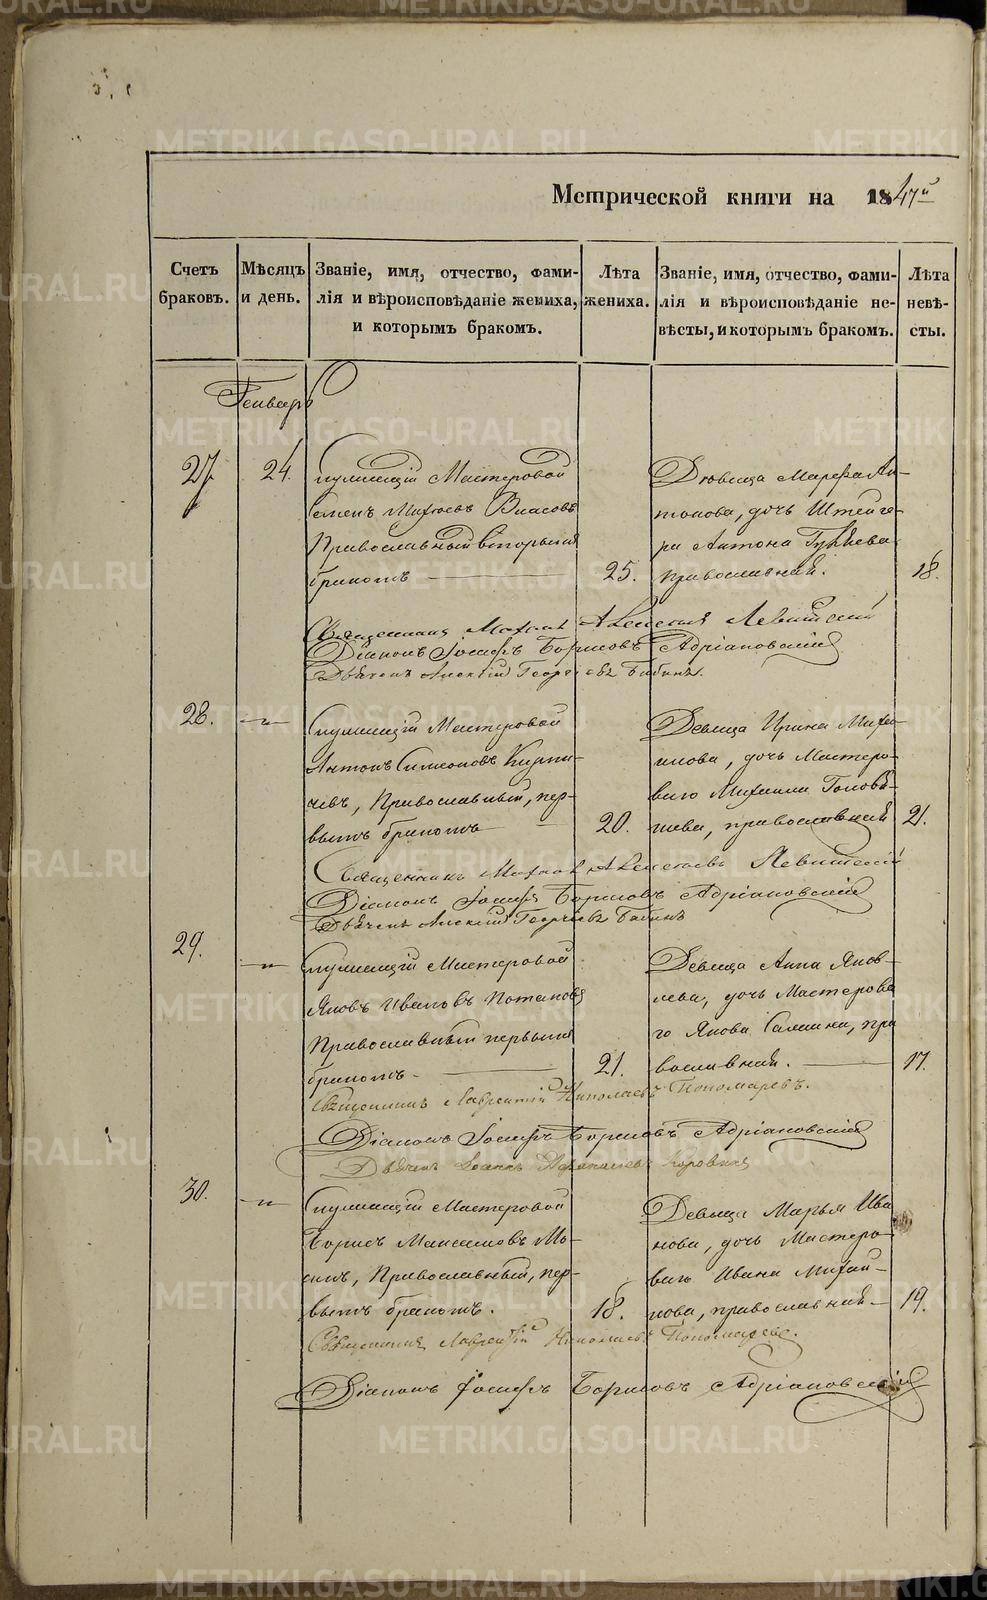 METRIKI.GASO-URAL.RU
Метрической книги на 1847й
Счетъ браковъ.
Мѣсяцъ и день.
Званіе, имя, отчество, фами-
лія и вѣроисповѣданіе жениха,
и которымъ бракомъ.
Лѣта жениха.
Званіе, имя, отчество, фами-
лія и вѣроисповѣданіе не-
вѣсты, и которымъ бракомъ.
Лѣта невѣ-
сты.
Генварь
27 24.
Служащій Мастеровой
Православный вторымъ
бракомъ 25.
Дѣвица Марфа Ан-
тонова, дочь Штейге-
ра Антона
православная. 18.
Левитскій
Діаконъ Іосифъ Борисовъ Адріановскій
Дьячекъ Алексій Георгіевъ Бабинъ.
28.
Служащій Мастеровой
Антонъ Симеоновъ Кирпи-
чевъ, Православный, пер-
вымъ бракомъ 20.
Девица Ирина Михаи-
лова, дочь Мастеро-
ваго Михаила
православная 21.
Священникъ Левитскій
Діаконъ Іосифъ Борисовъ Адріановскій
Дьячекъ Алексій Георгіевъ Бабинъ
29.
Служащій Мастеровой
Яковъ Ивановъ Потаповъ
Православный первымъ
бракомъ 21.
Девица Анна Яков-
лева, дочь Мастерова
го Якова пра
вославная. 17.
Священникъ Лаврентій Николаевъ Пономаревъ.
Діаконъ Іосифъ Борисовъ Адріановскій
Дьячекъ Іоаннъ
30.
Служащій Мастеровой
Борисъ Максимовъ Мо-
Православный, пер-
вымъ бракомъ. 18.
Девица Марья Ива
нова, дочь Мастеро-
ваго Ивана Михай-
лова, православная 19.
Священникъ Лаврентій Николаевъ Пономаревъ.
Діаконъ Іосифъ Борисовъ Адріановскій